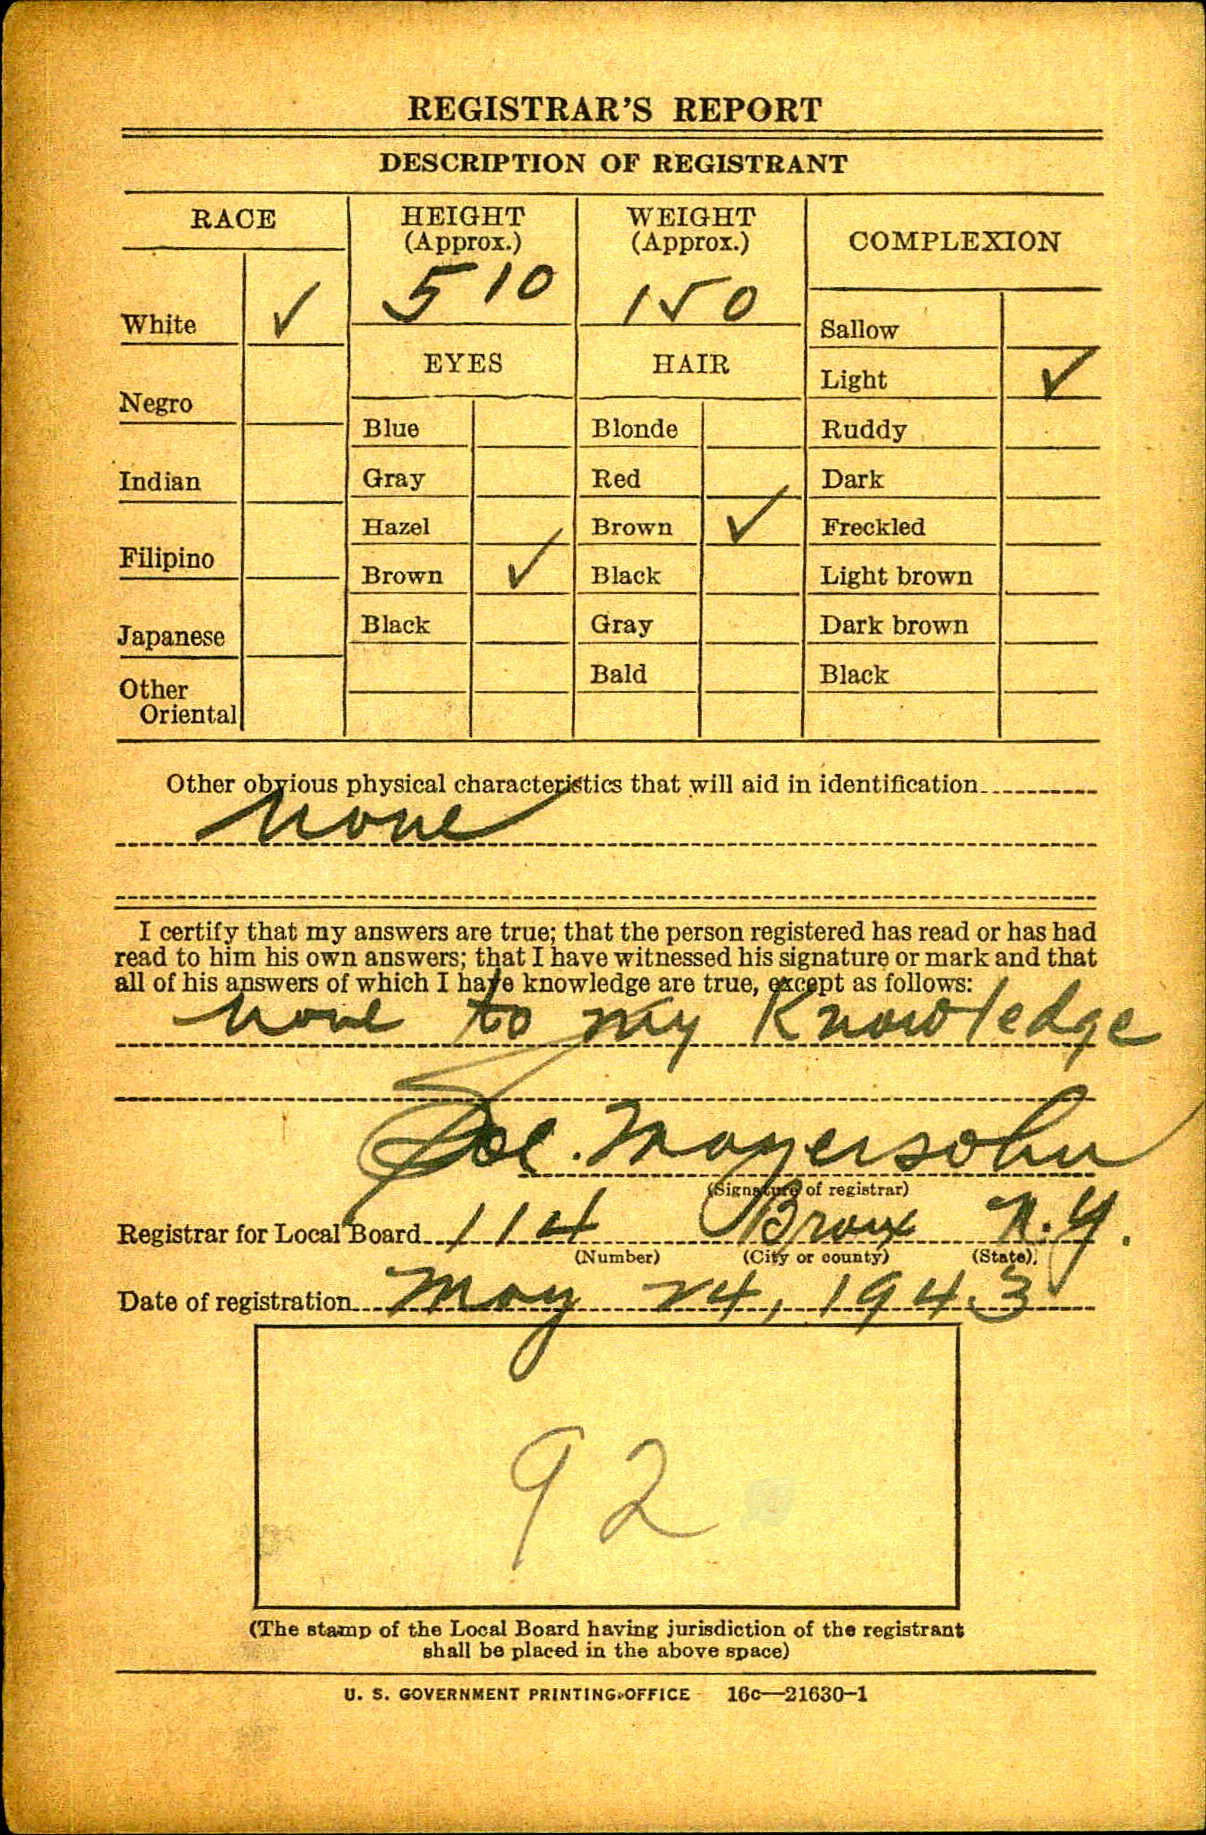 REGISTRAR'S REPORT
DESCRIPTION OF REGISTRANT
RACE
White ✓
Negro
Indian
Filipino
Japanese
Other
Oriental
HEIGHT
(Approx.)
5 10
WEIGHT
(Approx.)
150
EYES
Blue
Gray
Hazel
Brown ✓
Black
HAIR
Blonde
Red
Brown ✓
Black
Gray
Bald
COMPLEXION
Sallow
Light ✓
Ruddy
Dark
Freckled
Light brown
Dark brown
Black
Other obvious physical characteristics that will aid in identification
None
I certify that my answers are true; that the person registered has read or has had
read to him his own answers; that I have witnessed his signature or mark and that
all of his answers of which I have knowledge are true, except as follows:
None to my Knowledge
Mayersohn
(Signature of registrar)
Registrar for Local Board 114 Bronx N.Y.
(Number) (City or county) (State)
Date of registration May 24, 1943
92
(The stamp of the Local Board having jurisdiction of the registrant
shall be placed in the above space)
U. S. GOVERNMENT PRINTING OFFICE 16c—21630-1